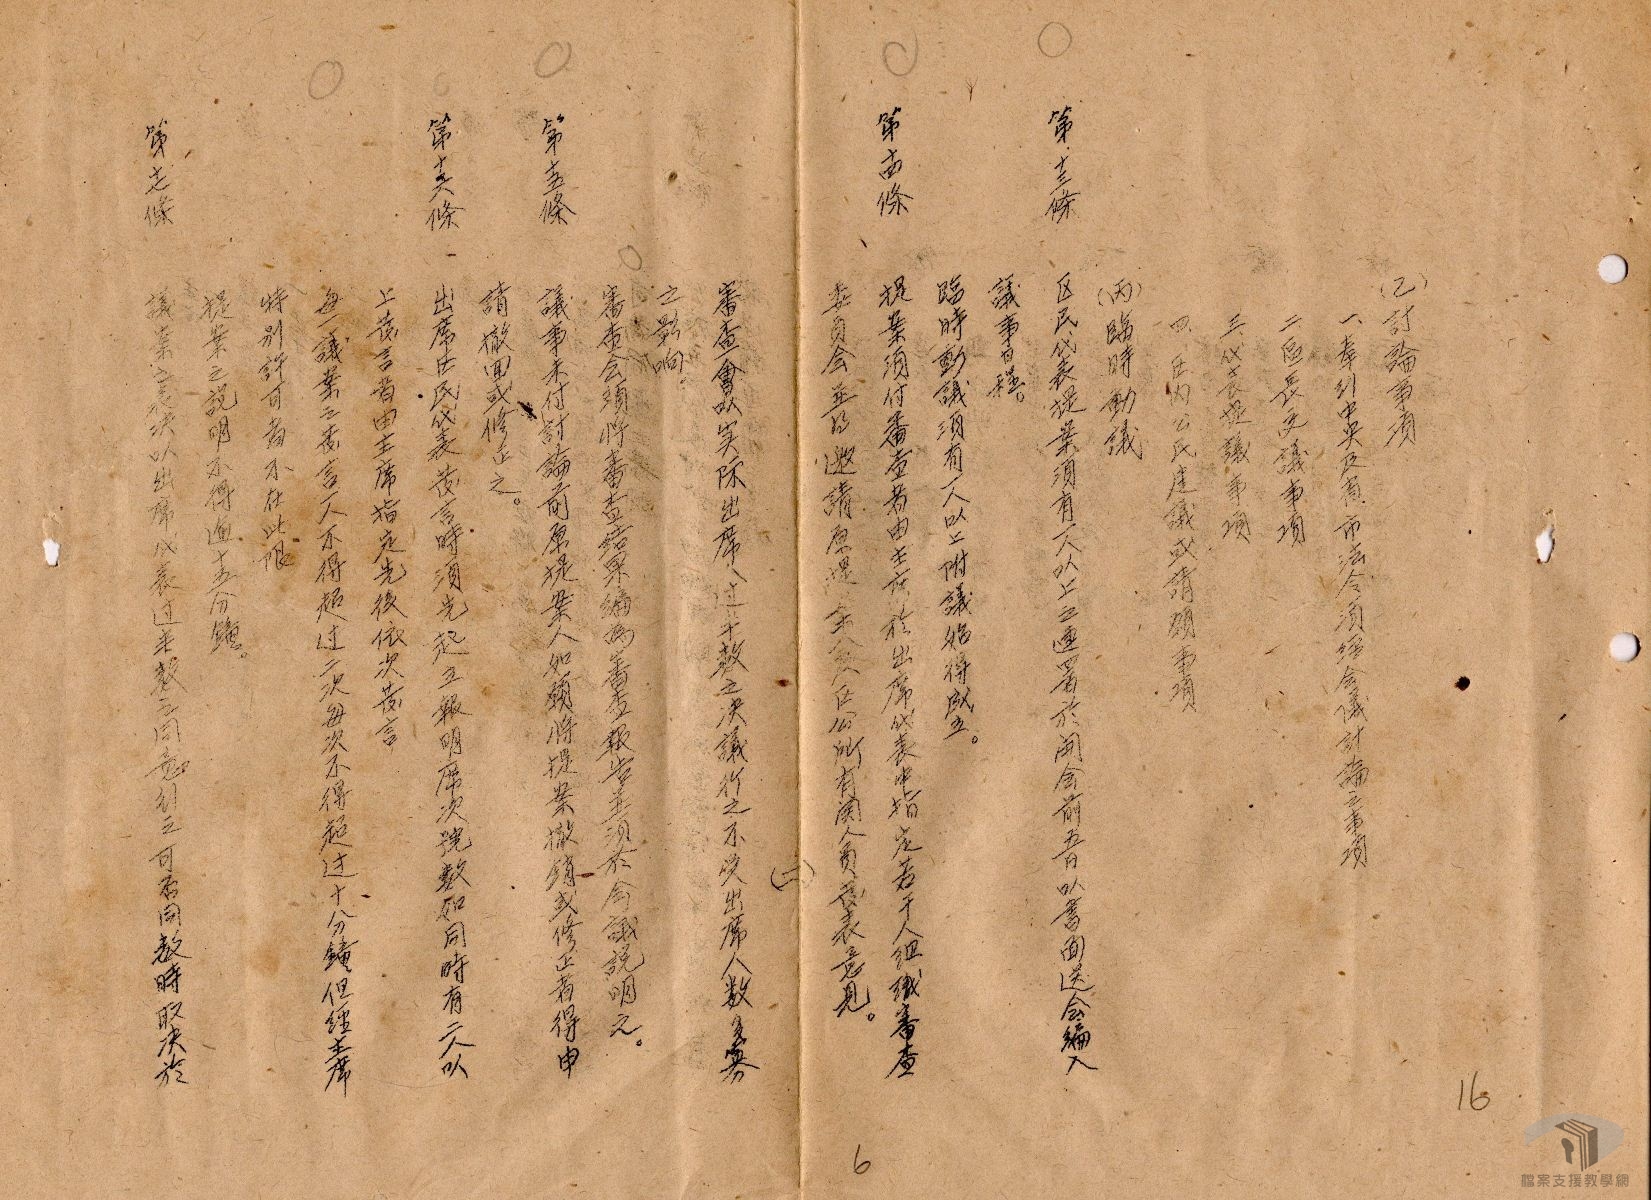 (乙)討論事項
一、奉列中央及省市法令須經會議討論之事項
二、區長交議事項
三、代表提議事項
四、区內公民建議或請願事項
(丙)臨時動議
第十三條 区民代表提案須有一人以上之連署於開会前五日以書面送会編入
議事日程。
臨時動議須有一人以上附議始得成立。
第十四條 提案須付審查者由主席於出席代表中指定若干人組織審查
委員会並得邀請原提案人及区公所有関人員發表意見。
(二)
審查會以实际出席人过半数之决議行之不受出席人数多寡
之影响。
審查会須將審查結果編為審查報告並須於会議說明之。
第十五條 議事未付討論前原提案人如願將提案撤銷或修正者得申
請撤回或修正之。
第十六條 出席区民代表發言時須先起立報明席次號数如同時有二人以
上發言者由主席指定先後依次發言
每一議案之發言一人不得超过二次每次不得超过十分鐘但經主席
特別許可者不在此限
提案之説明不得過十五分鐘。
第十七條 議案之表决以出席代表过半数之同意行之可否同数時取决於
16
6
檔案支援教學網